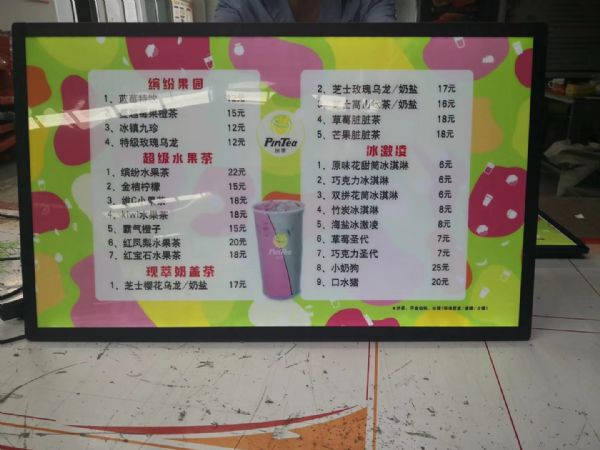 缤纷果园
1、蓝莓特饮
莓果橙茶 15元
3、冰镇九珍 12元
4、特级玫瑰乌龙 12元
超级水果茶
1、缤纷水果茶 22元
2、金桔柠檬 15元
3、维C小果茶 18元
4、kiwi水果茶 18元
5、霸气橙子 15元
6、红凤梨水果茶 20元
7、红宝石水果茶 18元
现萃奶盖茶
1、芝士樱花乌龙/奶盐 17元
PinTea
PinTea
2、芝士玫瑰乌龙/奶盐 17元
3、芝士高山茶/奶盐 16元
4、草莓脏脏茶 18元
5、芒果脏脏茶 18元
冰激凌
1、原味花甜筒冰淇淋 6元
2、巧克力冰淇淋 6元
3、双拼花筒冰淇淋 6元
4、竹炭冰淇淋 8元
5、海盐冰激凌 8元
6、草莓圣代 7元
7、巧克力圣代 7元
8、小奶狗 25元
9、口水猪 20元